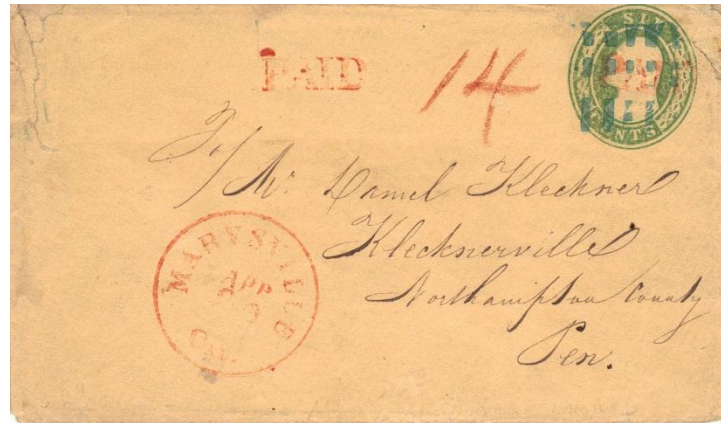 PAID
14
SIX
CENTS
To/ Mr. Daniel Kleckner
Klecknerville
Northampton County
Pen.
MARYSVILLE
APR
Cal.